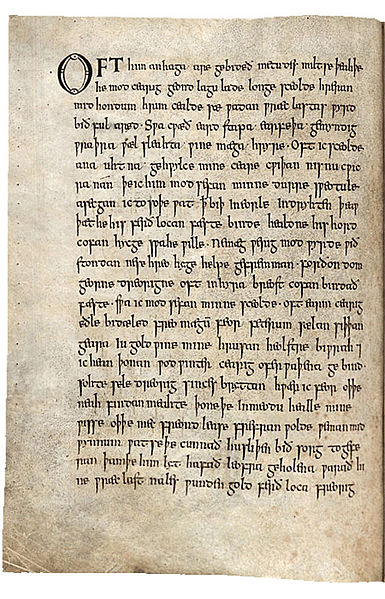 OFT him anhaga are gebideð metudes miltse þeah þe
he modcearig geond lagu lade longe sceolde hreran
mid hondum hrim cealde sæ ƿadan ƿræc lastas ƿyrd
bið ful aræd· Sƿa cƿæð eard stapa earfeþa gemyndig
ƿraþra ƿæl sleahta ƿine mæga hryre· Oft ic sceolde
ana uhtna gehƿylce mine ceare cƿiþan nis nu cƿic
ra nan þe ic him mod sefan minne durre sƿeotule
asecgan ic to soþe ƿat þ̄ biþ in eorle indryhten þeaƿ
þæt he his ferð locan fæste binde healdne his hord
cofan hycge sƿa he ƿille· Ne mæg ƿerig mod ƿyrde ƿið
stondan ne se hreo hyge helpe gefremman· Forðon dom
georne dreorigne oft in hyra breost cofan bindað
fæste· Sƿa ic mod sefan minne sceolde· oft earm cearig
eðle bidæled freo mægū feor feterum sælan siþþan
geara iu gold ƿine mine hrusan heolstre biƿrah ⁊
ic hean þonan ƿod ƿinter cearig ofer ƿaþena ge bind·
sohte sele dreorig sinces bryttan hƿær ic feor oþþe
neah findan meahte þone þe in meodu healle mine
ƿisse oþþe mec freond lease frefran ƿolde ƿeman mid
ƿynnum ƿat se þe cunnað hu sliþen bið sorg to gefe
ran þam þe him lyt hafað leofra geholena ƿarað hi
ne ƿræc last nales ƿunden gold ferð loca freorig